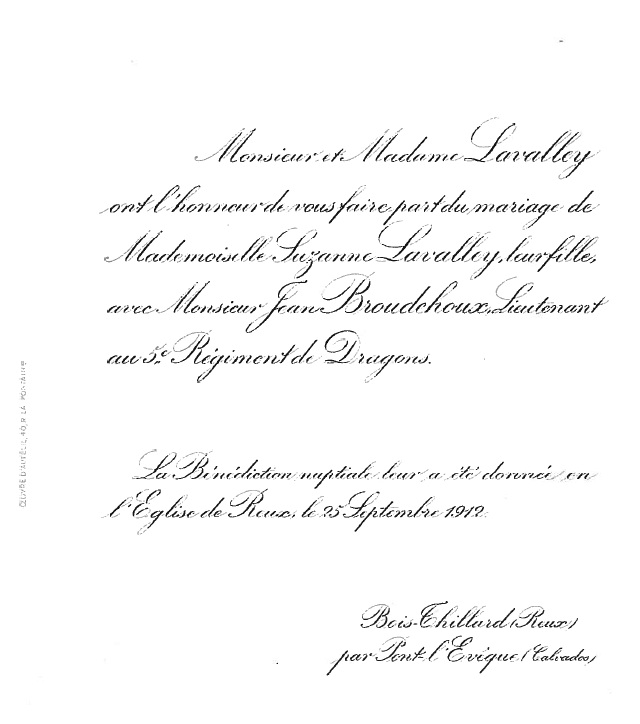 Monsieur et Madame Lavalley
ont l'honneur de vous faire part du mariage de
Mademoiselle Suzanne Lavalley, leur fille,
avec Monsieur Jean Broudehoux, Lieutenant
au 5e Régiment de Dragons.
La Bénédiction nuptiale leur a été donnée en
l'Eglise de Reux, le 25 Septembre 1912.
Bois-Thillard (Reux)
par Pont-l'Evêque (Calvados)
ŒUVRE D'AUTEUIL, 40, R. LA FONTAINE